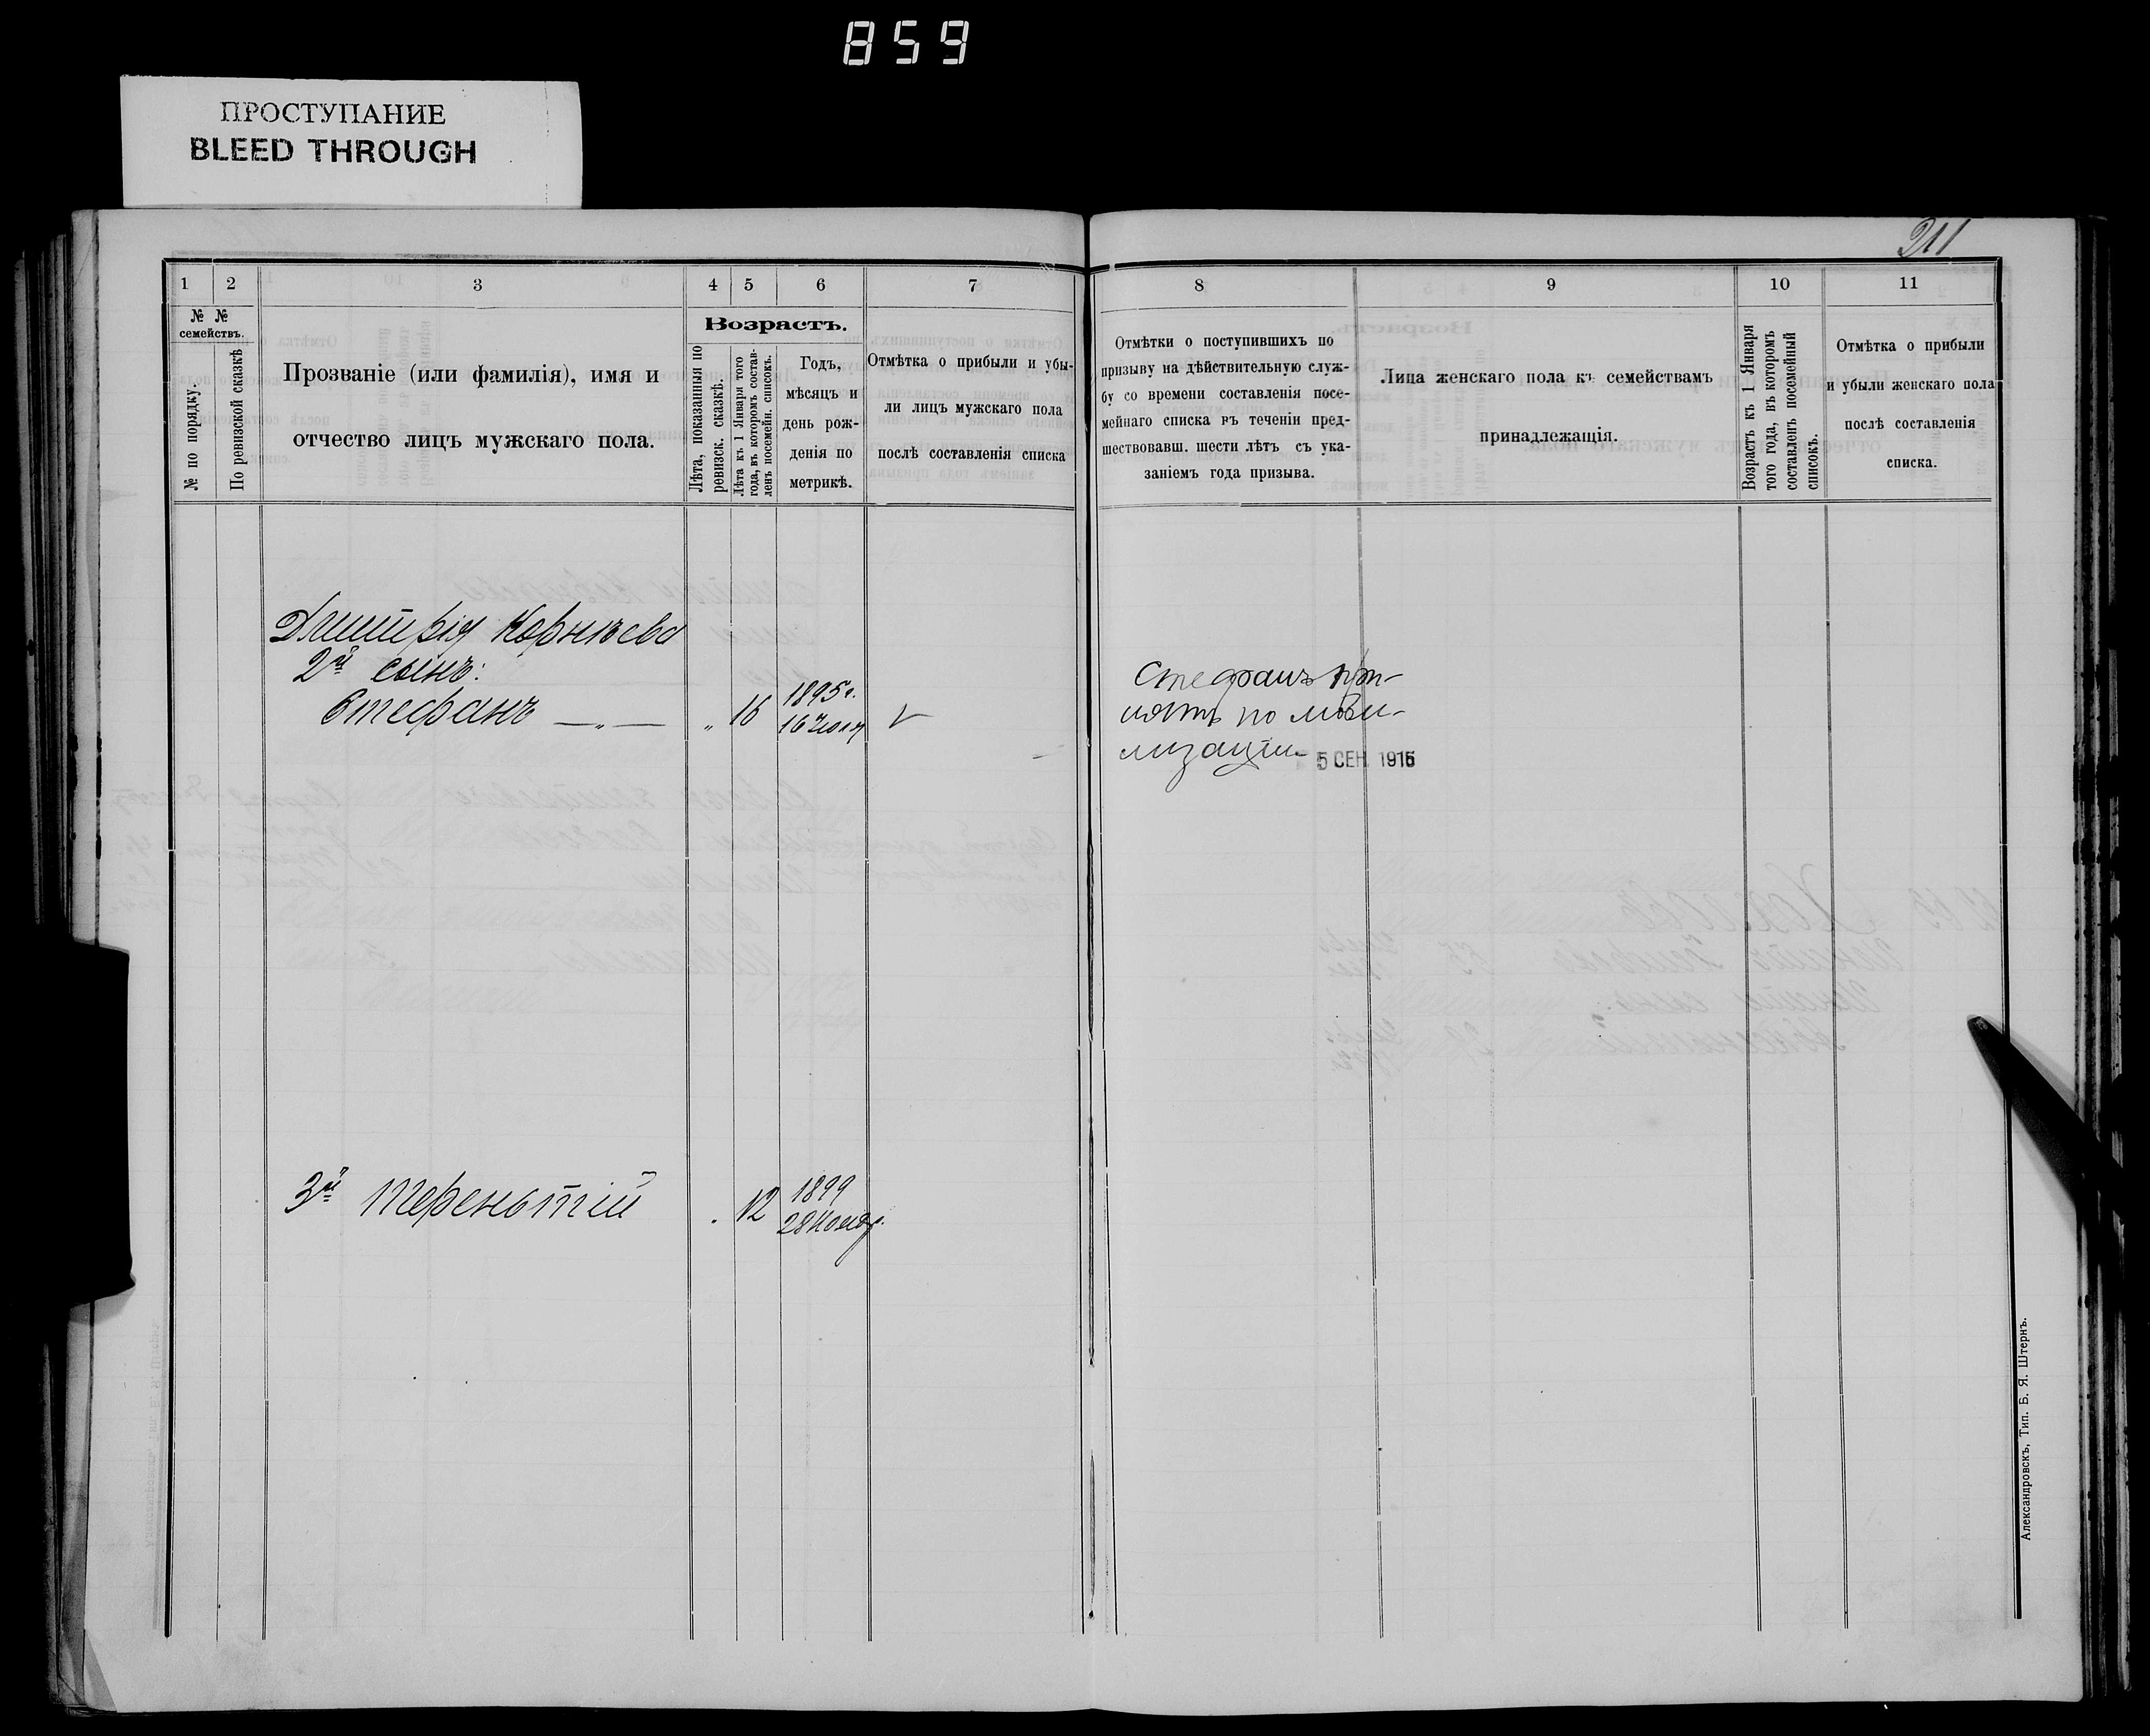 859
ПРОСТУПАНИЕ
BLEED THROUGH
211
1 2 3 4 5 6 7
№ № семействъ.
№ по порядку.
По ревизской сказкѣ
Прозваніе (или фамилія), имя и
отчество лицъ мужскаго пола.
Возрастъ.
Лѣта, показанныя по
ревизск. сказкѣ.
Лѣта къ 1 Января того
года, въ которомъ состав-
ленъ посемейн. списокъ.
Годъ,
мѣсяцъ и
день рож-
денія по
метрикѣ.
Отмѣтка о прибыли и убы-
ли лицъ мужскаго пола
послѣ составленія списка
Дмитрія Корнѣева
2й сынъ:
Стефанъ — „ — „ 16 1895 г.
16 Іюля
3й Терентій 12 1899
28 Ноябр.
8 9 10 11
Отмѣтки о поступившихъ по
призыву на дѣйствительную служ-
бу со времени составленія посе-
мейнаго списка въ теченіи пред-
шествовавш. шести лѣтъ съ ука-
заніемъ года призыва.
Лица женскаго пола къ семействамъ
принадлежащія.
Возрастъ къ 1 Января
того года, въ которомъ
составленъ посемейный
списокъ.
Отмѣтка о прибыли
и убыли женскаго пола
послѣ составленія
списка.
Стефанъ при-
нятъ по моби-
лизаціи
5 СЕН. 1915
Александровскъ, Тип. Б. Я. Штернъ.